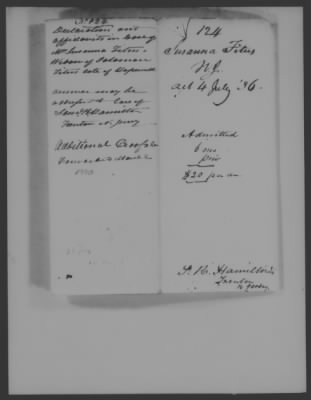 Declaration and
affidavits in case of
Mrs Susanna Titus
Widow of Solomon
Titus late of Hopewell
answer may be
care of
Saml R Hamilton
Trenton N. Jersey
Additional Proofs
124
Susanna Titus
NJ.
act 4 July 36.
Admitted
6 mo
priv
$20 per an.
S. R. Hamilton
Trenton
N Jersey